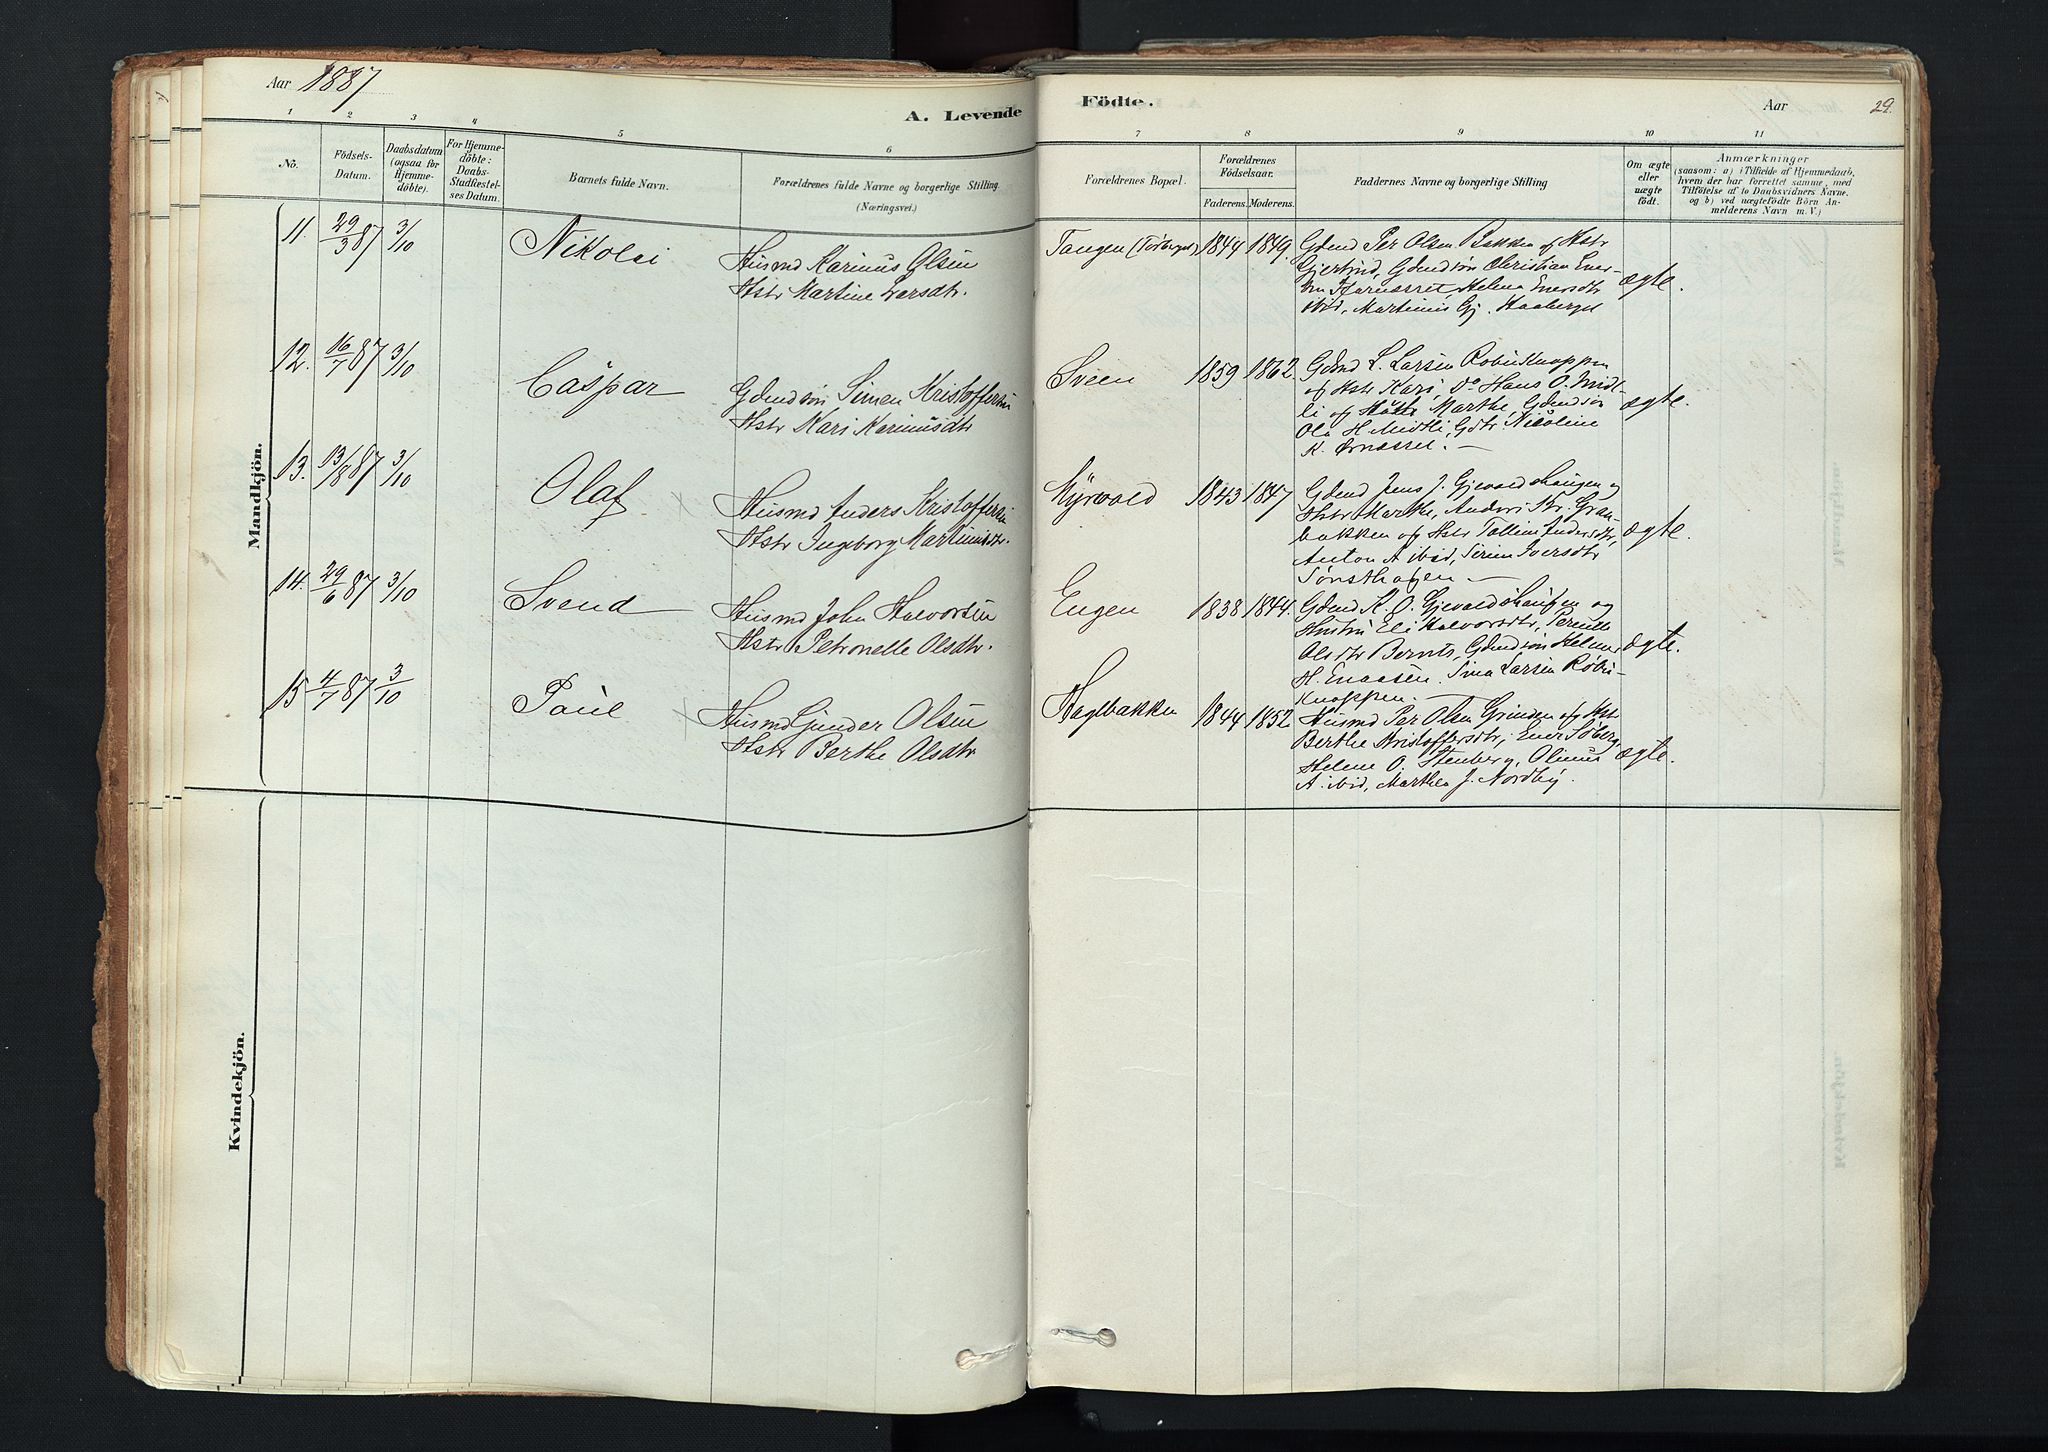 Aar 1887
A. Levende
1 2 3 4 5 6
No.
Födsels-
Datum.
Daabsdatum
(ogsaa for
Hjemme-
döbte).
For Hjemme-
döbte:
Daabs-
Stadfæstel-
ses Datum.
Barnets fulde Navn.
Forældrenes fulde Navne og borgerlige Stilling.
(Næringsvei.)
Mandkjön.
11. 29/3 87 3/10 Nikolai
Husmd Karinus Olsen
Hstr Martine Larsdtr.
12. 16/7 87 3/10 Caspar
Gdmdsön Simen Kristoffersen
Hstr Kari Karinusdtr
13. 13/8 87 3/10 Olaf
Husmd Anders Kristoffersen
Hstr Ingeborg Martinusdtr.
14. 29/6 87 3/10 Svend
Husmd John Halvorsen
Hstr Petronelle Olsdtr.
15 4/7 87 3/10 Paul
Husmd Gunder Olsen
Hstr Berthe Olsdtr
Kvindekjön.
Födte.
Aar
29.
7 8 9 10 11
Forældrenes Bopæl.
Forældrenes
Födselsaar.
Faderens. Moderens.
Faddernes Navne og borgerlige Stilling
Om ægte
eller
uægte
födt.
Anmærkninger
(saasom: a) i Tilfælde af Hjemmedaab,
hvem der har forrettet samme, med
Tilföielse af to Daabsvidners Navne.
og b) ved uægtefödte Börn An-
melderens Navn m. V.)
Tangen (Torberget) 1844 1849.
Gdmd Per Olsen Bakken og Hstr
Gjertrud, Gdmdsön Christian Ener-
sen Helene Enersdtr
ibid, Martinus Gj. Haaberget
ægte.
Sveen 1859 1862.
Gdmd L. Larsen Robinknappen
og Hstr Kari, Do Hans O. Midt-
li og Hstr Marthe, Gdmdsön
Ola H. Midtli, Gdtr. Nicoline
K. Ørnæsset. —
ægte.
Myrvold 1843 1847
Gdmd Jens J. Gjevaldshaugen og
Hstr Marthe, Anders Kr. Gran-
bakken og Hstr Andersdtr,
Anton A ibid, Siren Iversdtr
Tönsthagen —
ægte.
Engen 1838 1844.
Gdmd K. O. Gjevaldshaugen og
Hustru Eli Halvorsdtr, Pernille
Olsdtr Gdmdsön
H. Enaasen. Sina Larsen Robin-
knappen. —
ægte.
Haglbakken 1844 1852.
Husmd Per Olsen Grinden og Hstr
Berthe Kristoffersdtr, Ener Söberg,
Helene O. Stenberg, Olinus
A. ibid, Marthea J. Nordby.
ægte.